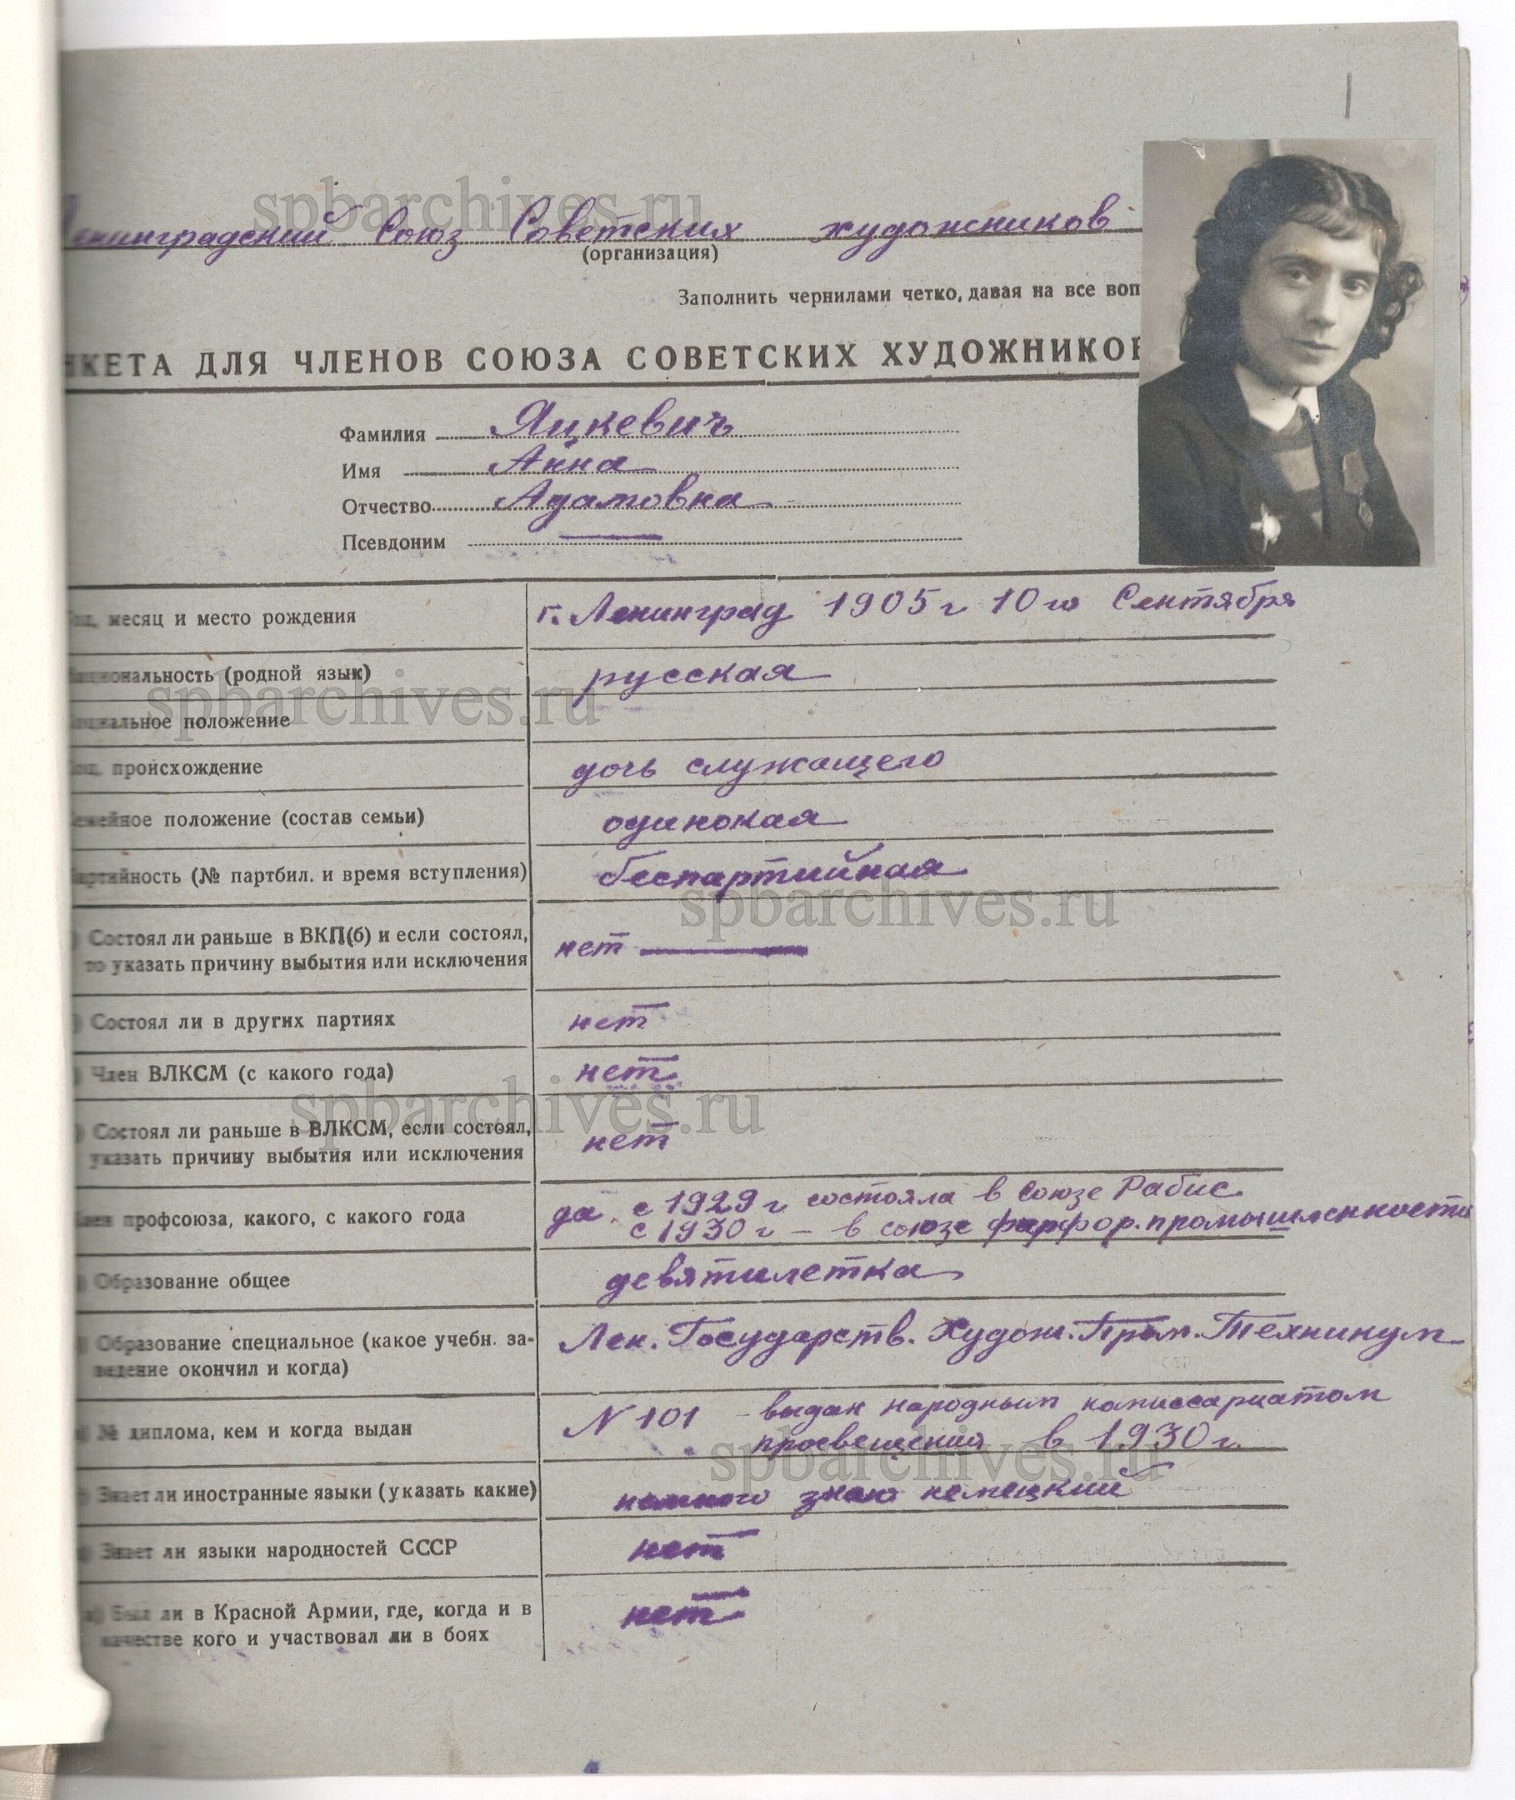 spbarchives.ru
Ленинградский Союз Советских художников
(организация)
Заполнить чернилами четко, давая на все воп
НКЕТА ДЛЯ ЧЛЕНОВ СОЮЗА СОВЕТСКИХ ХУДОЖНИКОВ
Фамилия Яцкевич
Имя Анна
Отчество Адамовна
Псевдоним —
месяц и место рождения г. Ленинград 1905 г 10го Сентября
Национальность (родной язык) русская
spbarchives.ru
Социальное положение
Соц. происхождение дочь служащего
Семейное положение (состав семьи) одинокая
Партийность (№ партбил. и время вступления) беспартийная
spbarchives.ru
Состоял ли раньше в ВКП(б) и если состоял,
то указать причину выбытия или исключения нет —
Состоял ли в других партиях нет
Член ВЛКСМ (с какого года) нет
spbarchives.ru
Состоял ли раньше в ВЛКСМ, если состоял,
указать причину выбытия или исключения нет
Член профсоюза, какого, с какого года да. с 1929 г. состояла в Союзе Рабис.
с 1930 г — в союзе фарфор. промышленности
Образование общее девятилетка
Образование специальное (какое учебн. за-
ведение окончил и когда) Лен. Государств. Худож. Пром. Техникум
№ диплома, кем и когда выдан N 101 – выдан народным комиссариатом
просвещения в 1930 г.
spbarchives.ru
Знает ли иностранные языки (указать какие) немного знаю немецкий
Знает ли языки народностей СССР нет
Был ли в Красной Армии, где, когда и в
качестве кого и участвовал ли в боях нет